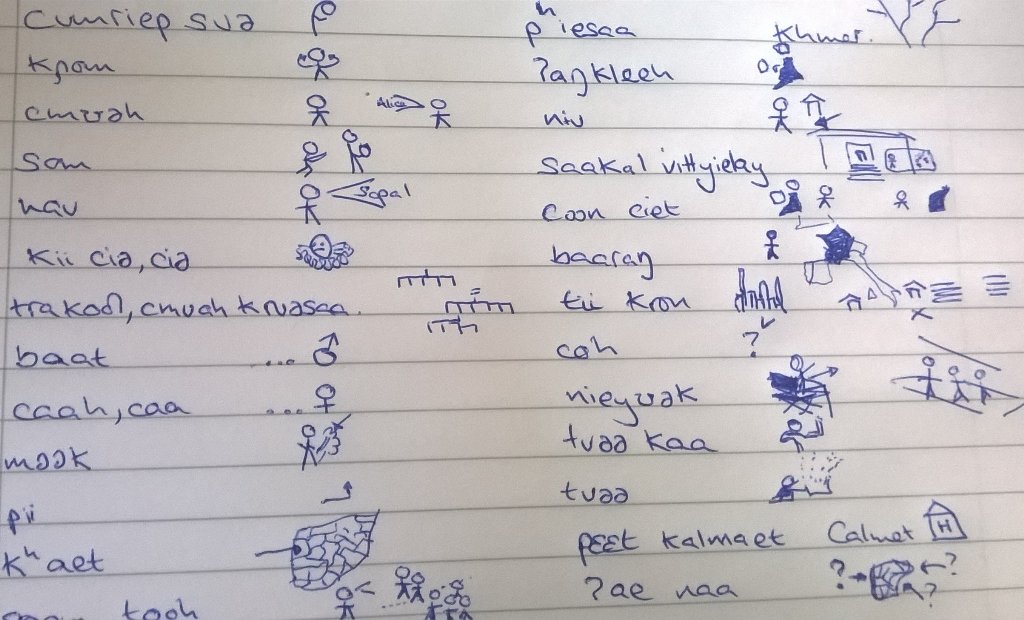 cumriep suə
kñom
cmʊəh
Alice
som
nəu
Sopal
kii ciə, ciə
trakool, cmuəh kruəsaa.
baat ... ♂
caah, caa ... ♀
mɔɔk
pii
kʰaet
tooh
pʰiesaa Khmer.
ʔaŋkleeh
niu
saakal vittyielay
coon ciet
baaraŋ
tii kroŋ
coh ?
nieyʊək
tvəə kaa
tvəə
pɛɛt kalmaet Calmet H
ʔae naa ? ? ?